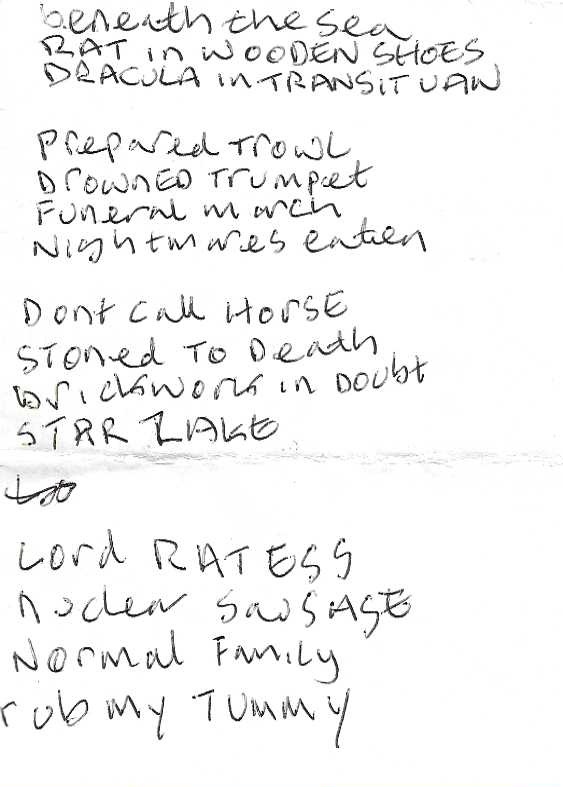 beneath the sea
RAT in WOODEN SHOES
DRACULA in TRANSIT VAN
Prepared TROWL
DROWNED Trumpet
Funeral march
Nightmares eaten
Dont Call HORSE
STONed TO Death
brickwork in Doubt
STAR LAKE
Lord RAT EGG
nuclear SausAGE
Normal Family
rub my TUMMY